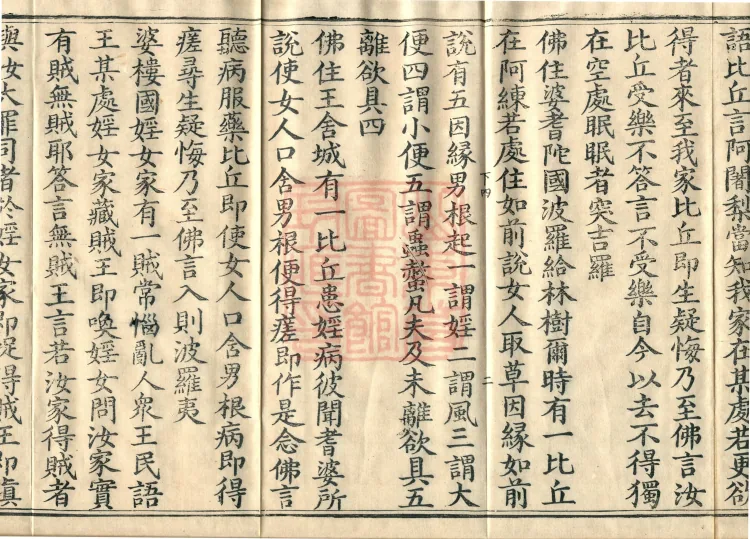 語比丘言阿闍梨當知我家在某處若更欲
得者來至我家比丘即生疑悔乃至佛言汝
比丘受樂不答言不受樂自今以去不得獨
在空處眠眠者突吉羅
佛住婆耆陀國波羅給林樹爾時有一比丘
在阿練若處住如前說女人取草因緣如前
說有五因緣男根起一謂婬二謂風三謂大
便四謂小便五謂蟲螫凡夫及未離欲具五
離欲具四
佛住王舍城有一比丘患婬病彼聞耆婆所
說使女人口含男根便得瘥即作是念佛言
聽病服藥比丘即使女人口含男根病即得
瘥尋生疑悔乃至佛言入則波羅夷
婆樓國婬女家有一賊常惱亂人衆王民語
王某處婬女家藏賊王即喚婬女問汝家實
有賊無賊耶答言無賊王言若汝家得賊者
與汝大罪伺者於婬女家即捉得賊王即瞋